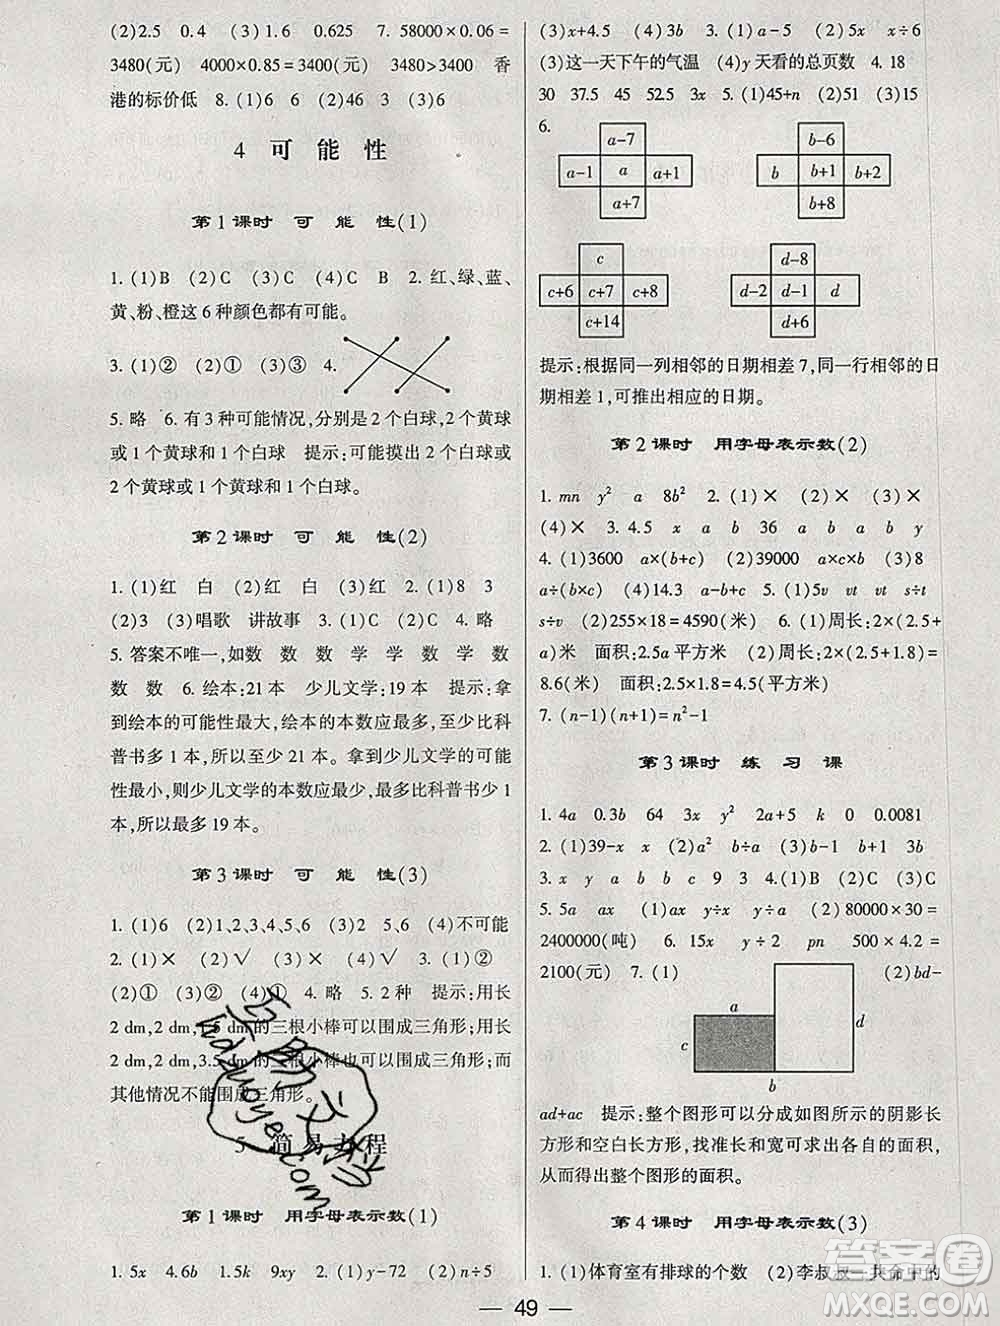 (2)2.5 0.4 (3)1.6 0.625 7. 58000×0.06=
3480(元) 4000×0.85=3400(元) 3480>3400 香
港的标价低 8. (1)6 6 (2)46 3 (3)6
4 可 能 性
第1课时 可 能 性(1)
1. (1)B (2)C (3)C (4)C B 2. 红、绿、蓝、
黄、粉、橙这 6 种颜色都有可能。
3. (1)② (2)① (3)③ 4.
5. 略 6. 有 3 种可能情况,分别是 2 个白球,2 个黄球
或 1 个黄球和 1 个白球 提示:可能摸出 2 个白球或
2 个黄球或 1 个黄球和 1 个白球。
第2课时 可 能 性(2)
1. (1)红 白 (2)红 白 (3)红 2. (1)8 3
(2)3 (3)唱歌 讲故事 3. (1)C (2)C 4. 略
5. 答案不唯一,如数 数 数 学 学 数 学 数
数 数 6. 绘本:21 本 少儿文学:19 本 提示:拿
到绘本的可能性最大,绘本的本数应最多,至少比科
普书多 1 本,所以至少 21 本。拿到少儿文学的可能
性最小,则少儿文学的本数应最少,至多比科普书少 1
本,所以最多 19 本。
第3课时 可 能 性(3)
1. (1)6 (2)1、2、3、4、5、6 (3)2 5、6 (4)不可能
2. (1)× (2)√ (3)× (4)√ 3. (1)②
(2)① (3)② (4)① 4. 略 5. 2 种 提示:用长
2 dm,2 dm,1.5 dm 的三根小棒可以围成三角形;用长
2 dm,2 dm,3.5 dm 的三根小棒也可以围成三角形;而
其他情况不能围成三角形。
5 简 易 方 程
第1课时 用字母表示数(1)
1. 5x 4.6b 1.5k 9xy 2. (1)y-72 (2)n÷5
(3)x+4.5 (4)8x 3. (1)a-5 (2)5x x÷6
(3)这一天下午的气温 (4)y 天看的总页数 4. 18
30 37.5 45 52.5 3x 5. (1)45+n (2)51 (3)15
6.
a-7
a-1 a a+1
a+7
b-6
b b+1 b+2
b+8
c
c+6 c+7 c+8
c+14
d-8
d-2 d-1 d
d+6
提示:根据同一列相邻的日期相差 7,同一行相邻的日
期相差 1,可推出相应的日期。
第2课时 用字母表示数(2)
1. mn y² a 8b² 2. (1)× (2)× (3)×
(4)× 3. 4.5 x a b 36 a b a b y
4. (1)3600 a×(b+c) (2)39000 a×c×b (3)8
a÷(b×c) (4)14.3 a-b+c 5. (1)5v vt vt s÷t
s÷v (2)255×18=4590(米) 6. (1)周长:2×(2.5+
a)米 面积:2.5a 平方米 (2)周长:2×(2.5+1.8)=
8.6(米) 面积:2.5×1.8=4.5(平方米)
7. (n-1)(n+1)=n²-1
第3课时 练 习 课
1. 4a 0.3b 64 3x y² 2a+5 k 0 0.0081
2. (1)39-x x (2)a² b÷a (3)b-1 b+1 3b
3. x y a b c 9 3 4. (1)B (2)C (3)C
5. 5a ax (1)ax y÷x y÷a (2)80000×30=
2400000(吨) 6. 15x y÷2 pn 500×4.2=
2100(元) 7. (1) (2)bd-
a
c
d
b
ad+ac 提示:整个图形可以分成如图所示的阴影长
方形和空白长方形,找准长和宽可求出各自的面积,
从而得出整个图形的面积。
第4课时 用字母表示数(3)
1. (1)体育室有排球的个数 (2)李叔叔一共命中的
49
答案圈
MXQE.COM